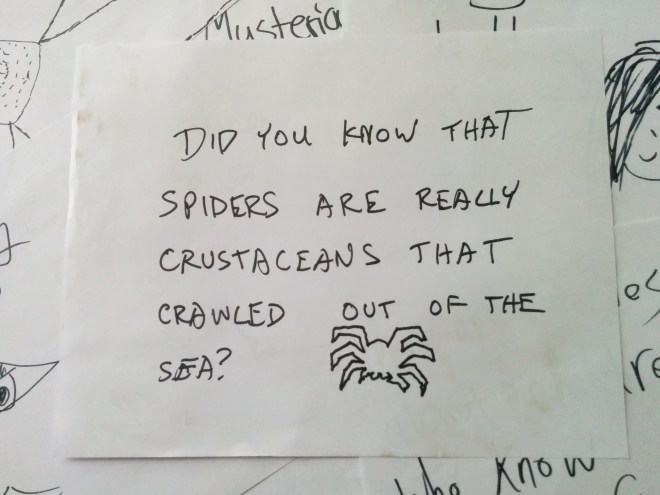 Musteria
DID YOU KNOW THAT
SPIDERS ARE REALLY
CRUSTACEANS THAT
CRAWLED OUT OF THE
SEA?
Know